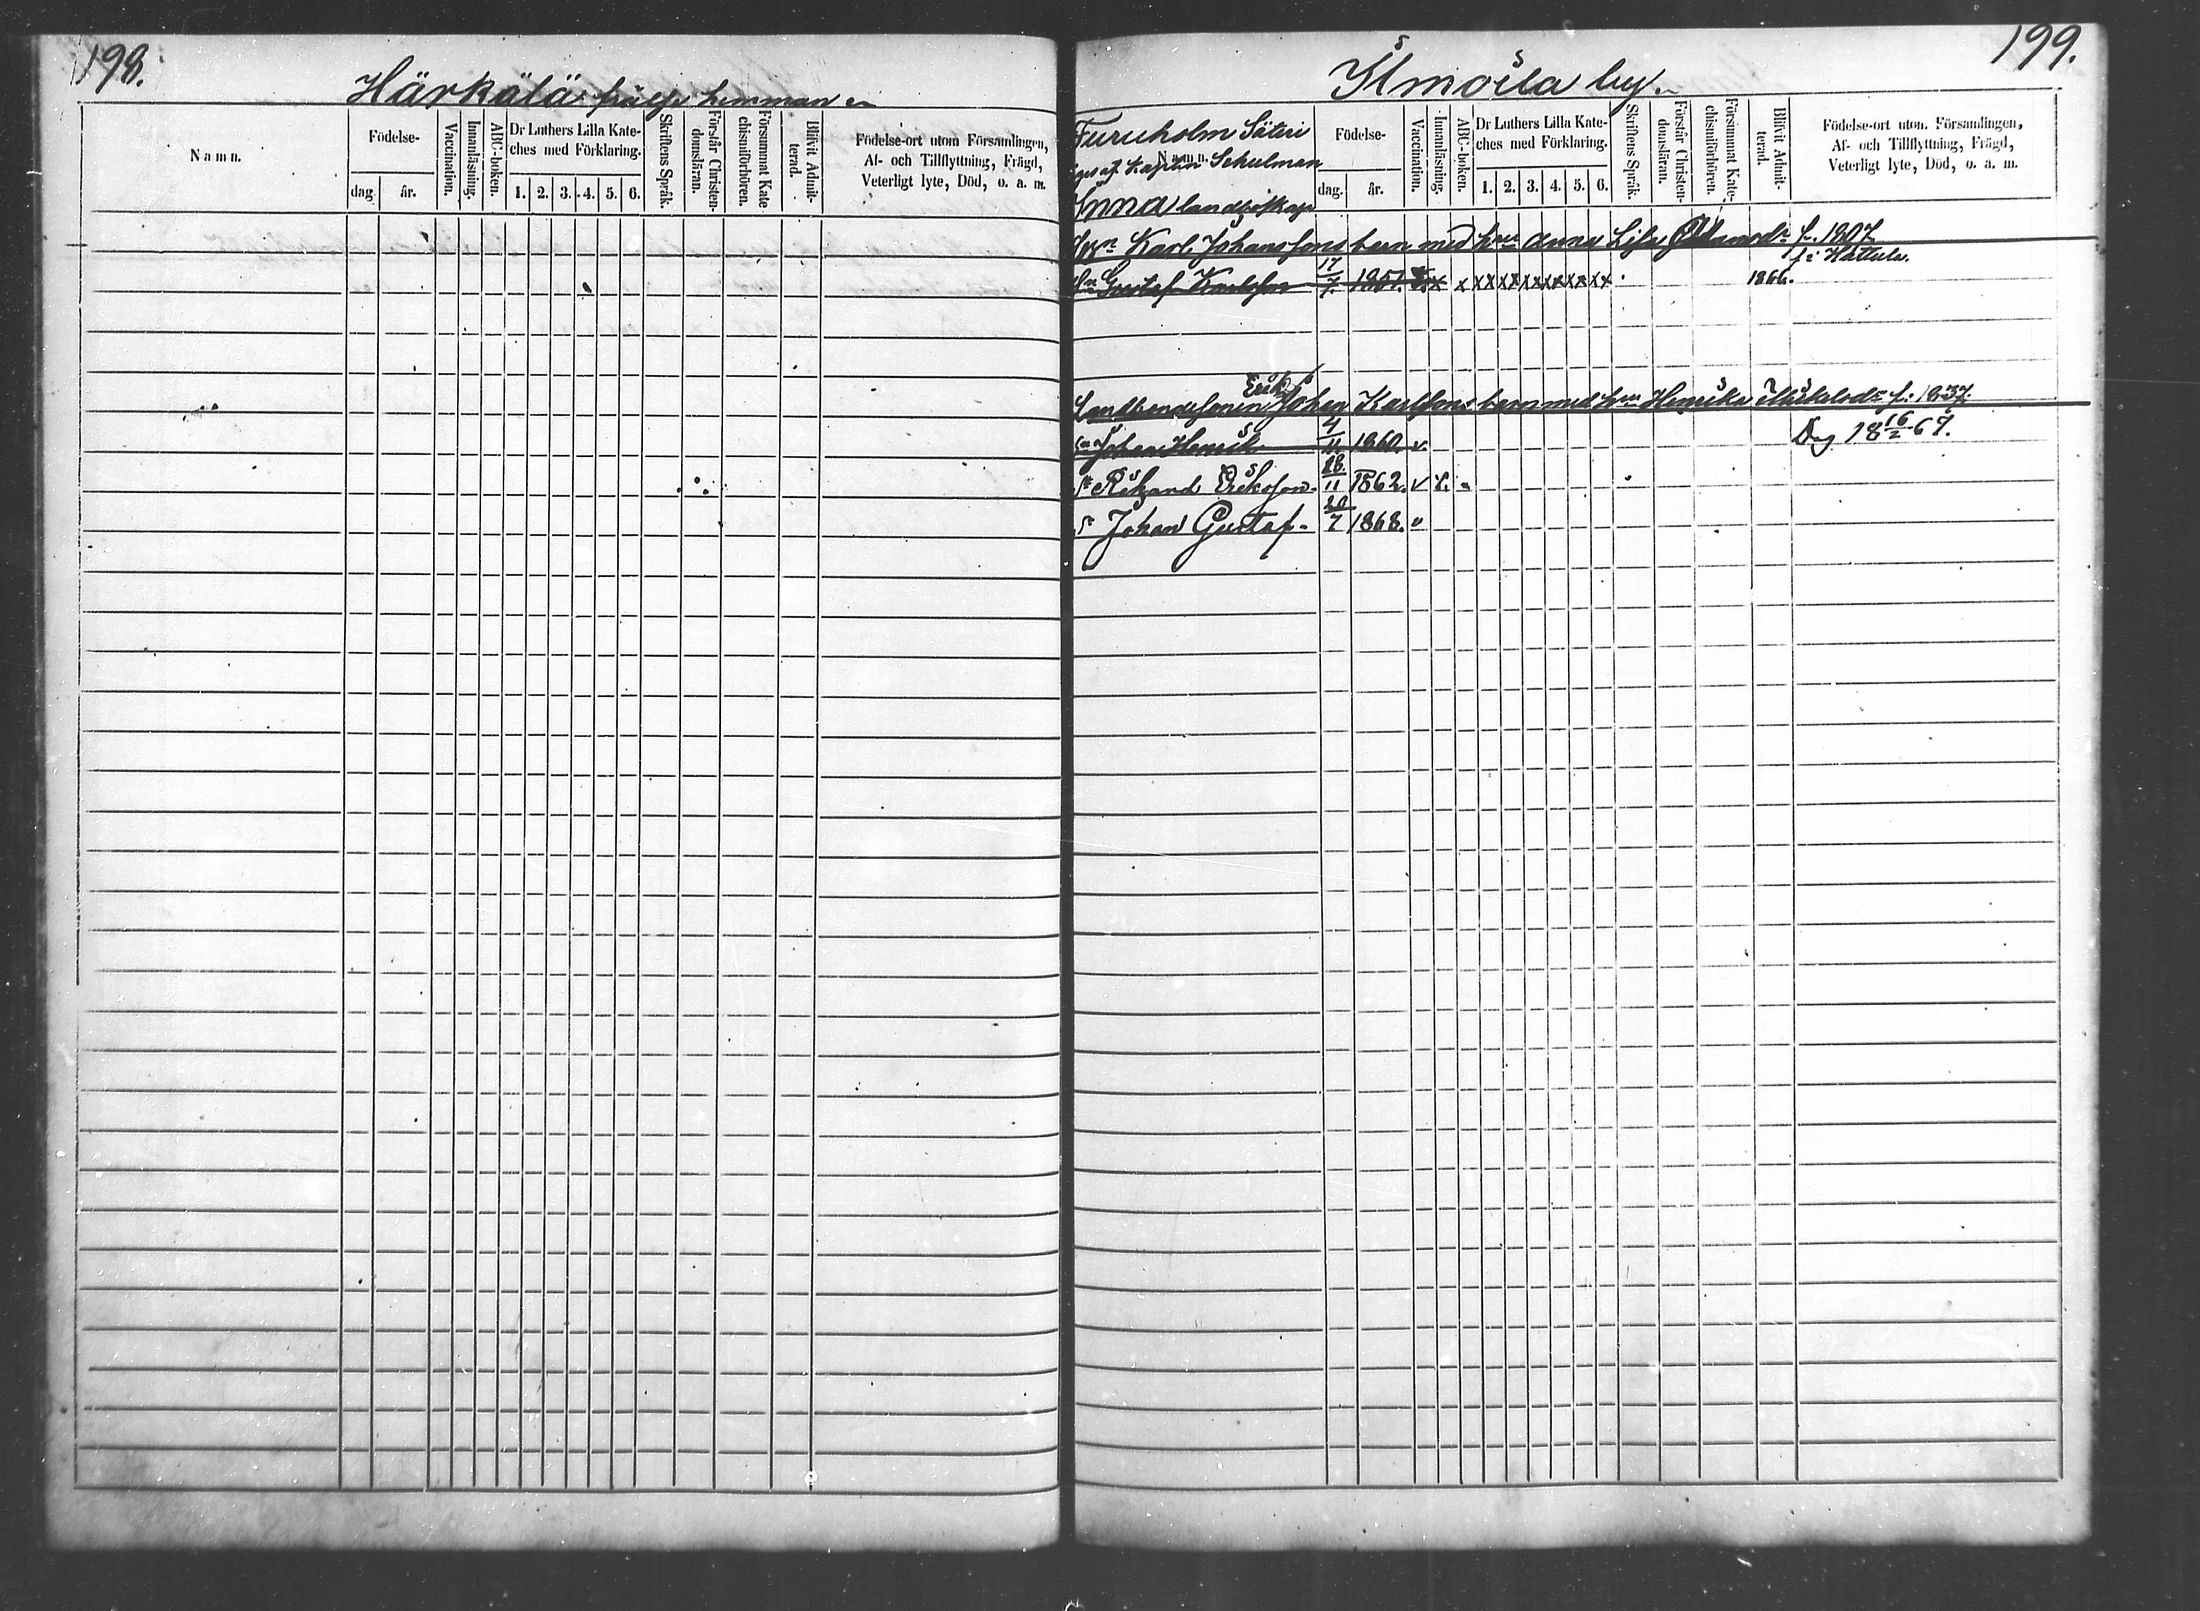 198.
Härkälä frälse hemman
Namn.
Födelse-
dag. år.
Vaccination.
Innanläsning.
ABC-boken.
Dr Luthers Lilla Kate-
ches med Förklaring.
1. 2. 3. 4. 5. 6.
Skriftens Språk.
Förstår Christen-
domsläran.
Försummat Kate
chismiförhören.
Blifvit Admit-
terad.
Födelse-ort utom Församlingen,
Af- och Tillflyttning, Frägd,
Veterligt lyte, Död, o. a. m.
199.
Ilmoila by.
Furuholm Säteri
Namn.
af Kapten Schulman
landbskap
Födelse-
dag. år.
Vaccination.
Innanläsning.
ABC-boken.
Dr Luthers Lilla Kate-
ches med Förklaring.
1. 2. 3. 4. 5. 6.
Skriftens Språk.
Förstår Christen-
domsläran.
Försummat Kate-
chismiförhören.
Blifvit Admit-
terad.
Födelse-ort utom Församlingen,
Af- och Tillflyttning, Frägd,
Veterligt lyte, Död, o. a. m.
Karl Johanssons barn med hru Anna Lisa f. 1807
f. i Hattula.
Gustaf Karlsson 17/7 1851. x x x x x x x x x x x 1866.
Erik
Landbondesonen Johan Karlssons barn med hru Henrika f: 1837.
Johan Henrik 4/11 1860. v. Dog 18 16/2 67.
Sn Rikhard Eriksson 28/11 1862. v
Sn Johan Gustaf 20/7 1868. v